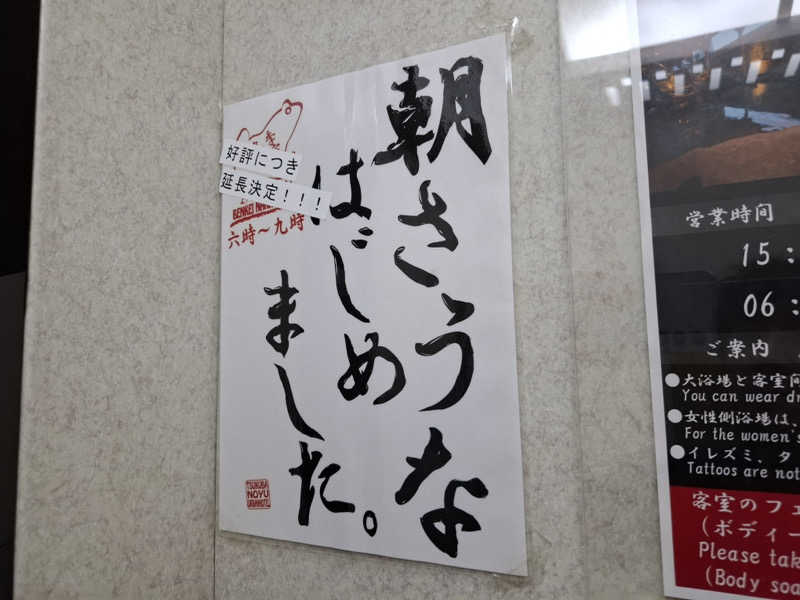 朝さうな
はじめ
ました。
好評につき
延長決定！！！
六時～九時
TSUKUBA
NOYU
URBANHOTEL
営業時間
15:
06:
ご案内
●大浴場と客室
You can wear
●女性側浴場は、
For the women's
●イレズミ、タ
Tattoos are not
客室のフェ
(ボディー
Please tak
(Body soa